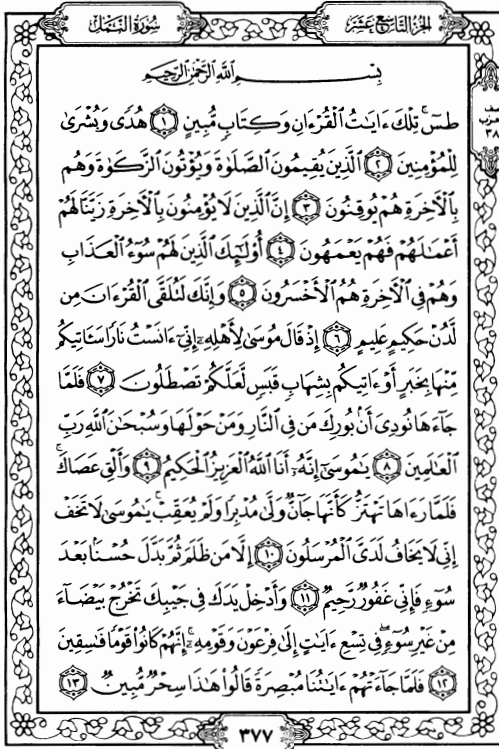 الجزء التاسع عشر
سورة النمل
بِسْمِ اللَّهِ الرَّحْمَٰنِ الرَّحِيمِ
طسٓ ۚ تِلْكَ ءَايَٰتُ الْقُرْءَانِ وَكِتَابٍ مُّبِينٍ ١ هُدًى وَبُشْرَىٰ
لِلْمُؤْمِنِينَ ٢ الَّذِينَ يُقِيمُونَ الصَّلَوٰةَ وَيُؤْتُونَ الزَّكَوٰةَ وَهُم
بِالْأَخِرَةِ هُمْ يُوقِنُونَ ٣ إِنَّ الَّذِينَ لَا يُؤْمِنُونَ بِالْأَخِرَةِ زَيَّنَّا لَهُمْ
أَعْمَٰلَهُمْ فَهُمْ يَعْمَهُونَ ٤ أُو۟لَٰٓئِكَ الَّذِينَ لَهُمْ سُوٓءُ الْعَذَابِ
وَهُمْ فِي الْأَخِرَةِ هُمُ الْأَخْسَرُونَ ٥ وَإِنَّكَ لَتُلَقَّى الْقُرْءَانَ مِن
لَّدُنْ حَكِيمٍ عَلِيمٍ ٦ إِذْ قَالَ مُوسَىٰ لِأَهْلِهِۦٓ إِنِّيٓ ءَانَسْتُ نَارًا سَـَٔاتِيكُم
مِّنْهَا بِخَبَرٍ أَوْ ءَاتِيكُم بِشِهَابٍ قَبَسٍ لَّعَلَّكُمْ تَصْطَلُونَ ٧ فَلَمَّا
جَآءَهَا نُودِيَ أَنۢ بُورِكَ مَن فِي النَّارِ وَمَنْ حَوْلَهَا وَسُبْحَٰنَ اللَّهِ رَبِّ
الْعَٰلَمِينَ ٨ يَٰمُوسَىٰٓ إِنَّهُۥٓ أَنَا اللَّهُ الْعَزِيزُ الْحَكِيمُ ٩ وَأَلْقِ عَصَاكَ ۚ
فَلَمَّا رَءَاهَا تَهْتَزُّ كَأَنَّهَا جَآنٌّ وَلَّىٰ مُدْبِرًا وَلَمْ يُعَقِّبْ ۚ يَٰمُوسَىٰ لَا تَخَفْ
إِنِّي لَا يَخَافُ لَدَيَّ الْمُرْسَلُونَ ١٠ إِلَّا مَن ظَلَمَ ثُمَّ بَدَّلَ حُسْنًۢا بَعْدَ
سُوٓءٍ فَإِنِّي غَفُورٌ رَّحِيمٌ ١١ وَأَدْخِلْ يَدَكَ فِي جَيْبِكَ تَخْرُجْ بَيْضَآءَ
مِنْ غَيْرِ سُوٓءٍ ۖ فِي تِسْعِ ءَايَٰتٍ إِلَىٰ فِرْعَوْنَ وَقَوْمِهِۦٓ ۚ إِنَّهُمْ كَانُوا۟ قَوْمًا فَٰسِقِينَ
١٢ فَلَمَّا جَآءَتْهُمْ ءَايَٰتُنَا مُبْصِرَةً قَالُوا۟ هَٰذَا سِحْرٌ مُّبِينٌ ١٣
٣٧٧